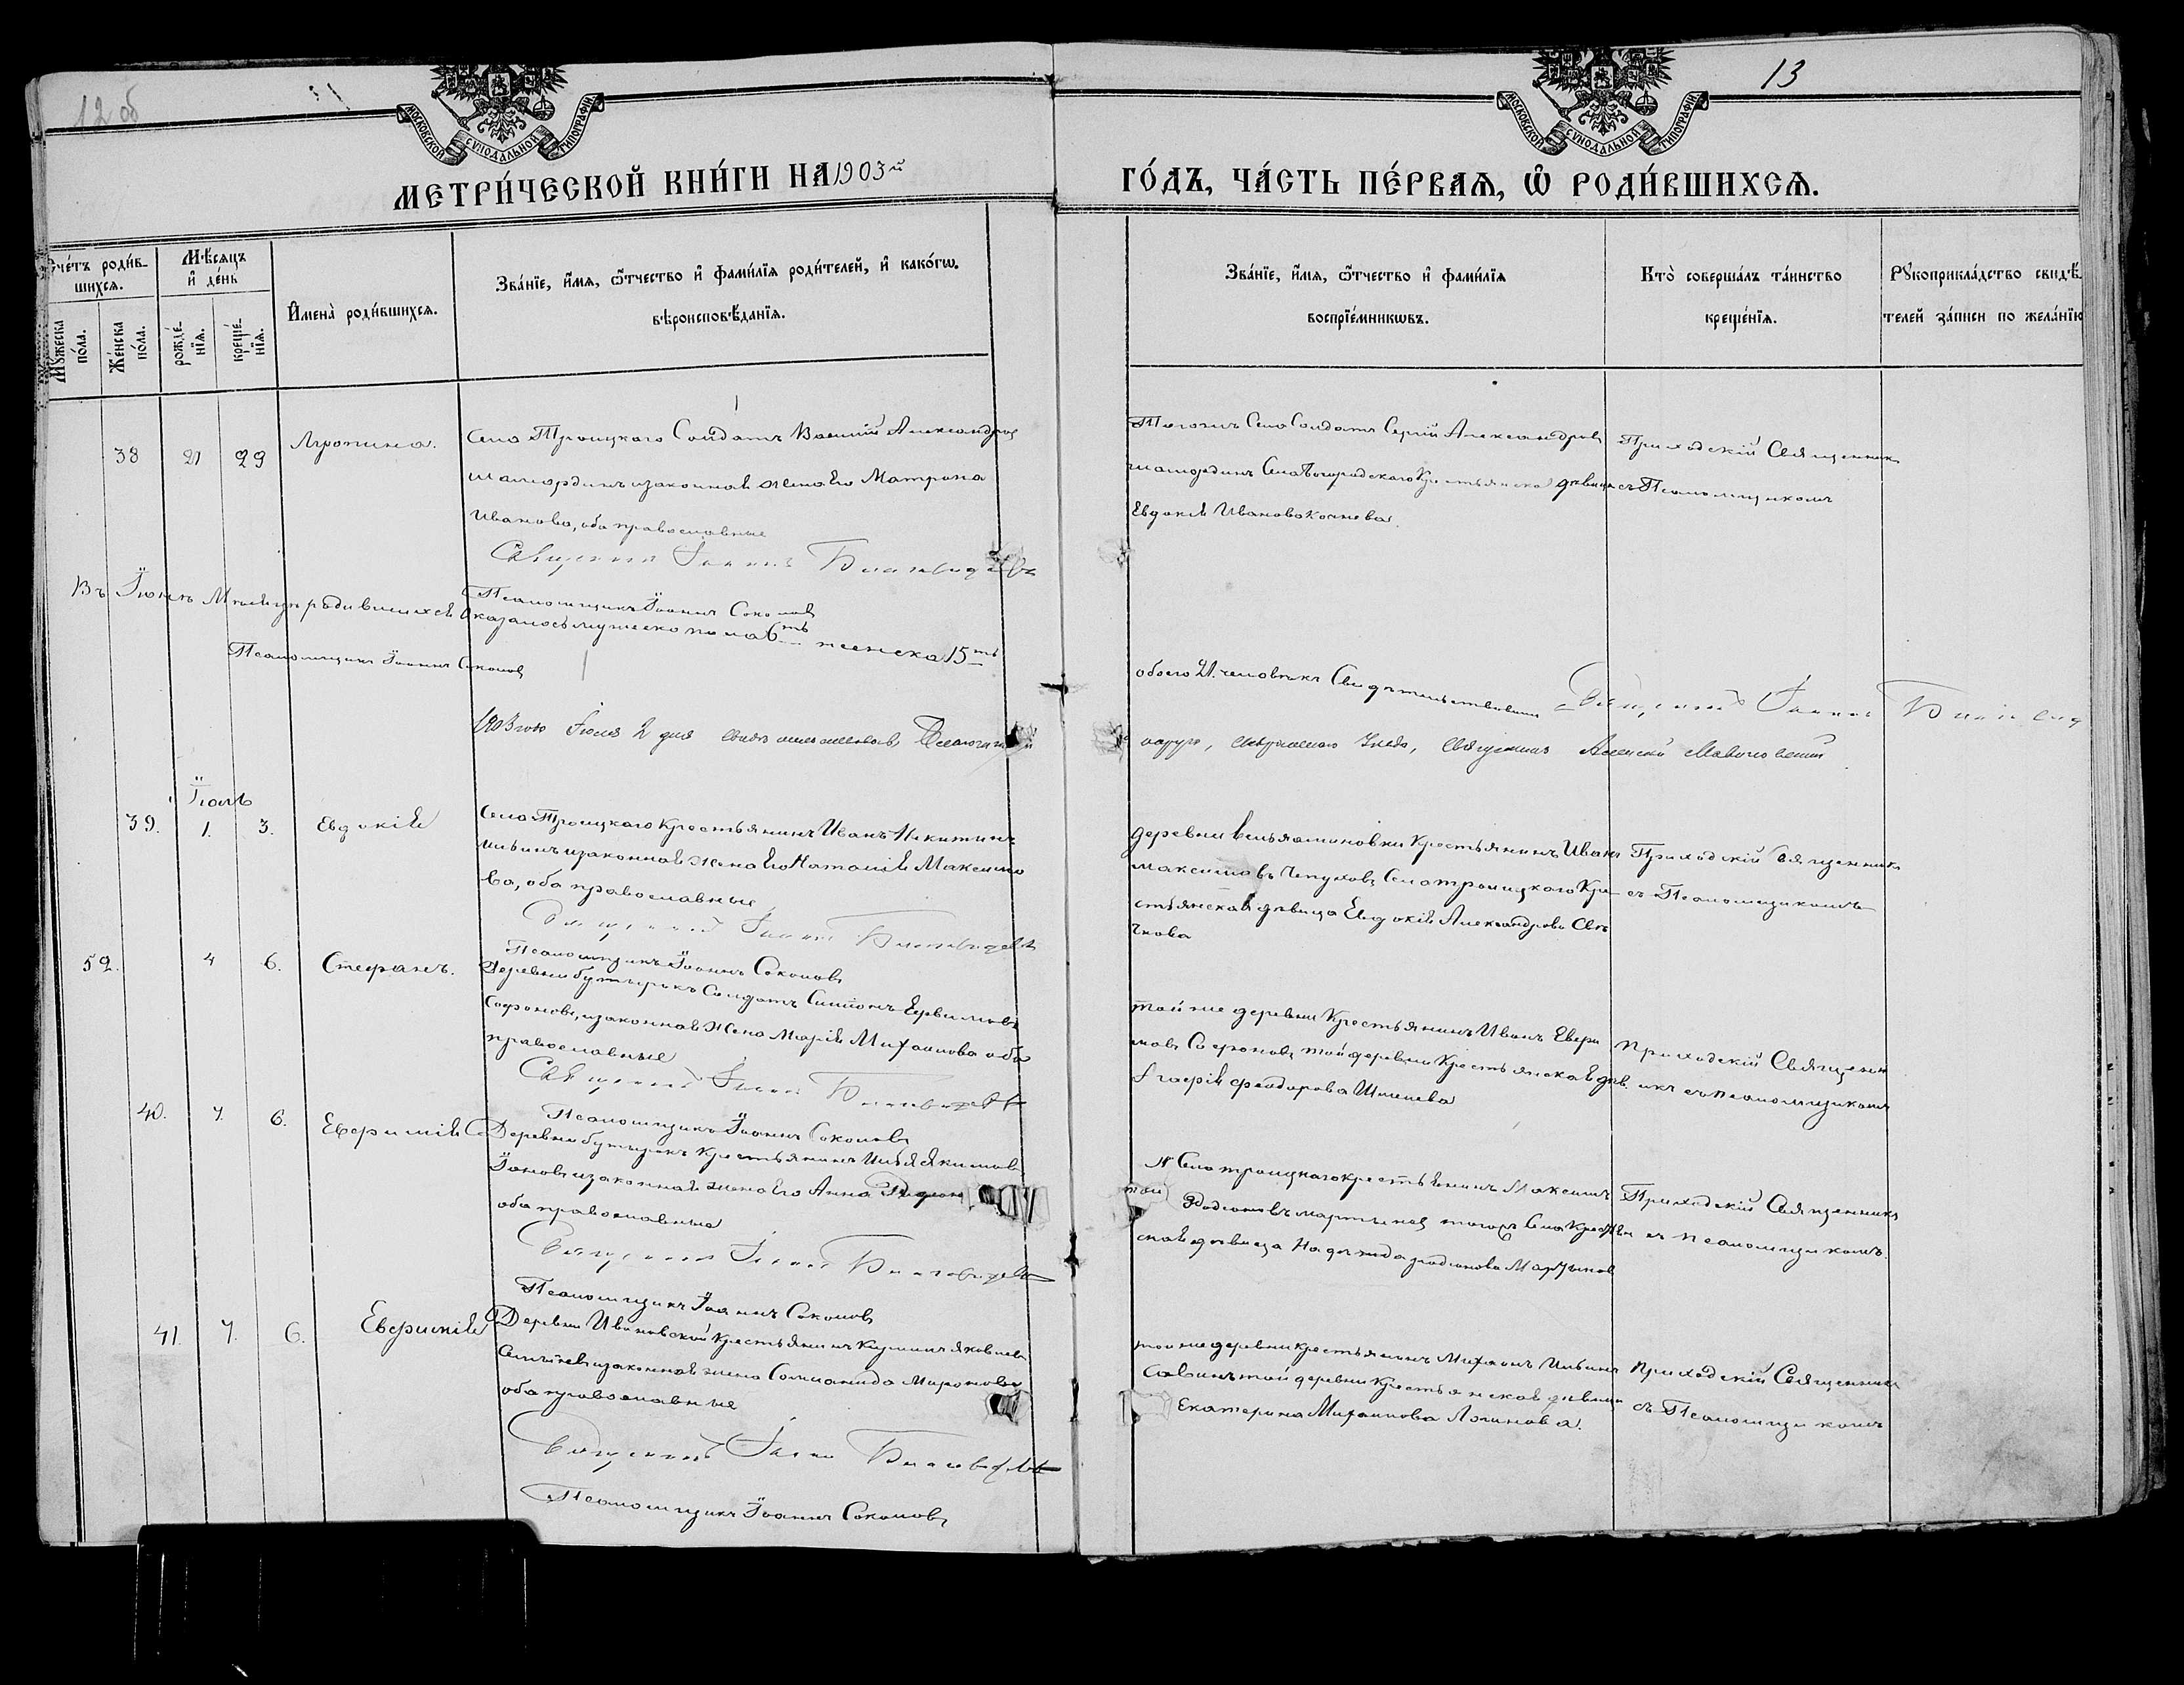 12 об
13
МОСКОВСКОЙ СѴНОДАЛЬНОЙ ТИПОГРАФІИ.
МОСКОВСКОЙ СѴНОДАЛЬНОЙ ТИПОГРАФІИ.
МЕТРИ́ЧЕСКОЙ КНИ́ГИ НА 1903й
ГО́ДЪ, ЧА́СТЬ ПЕ́РВАѦ, Ѡ҆ РОДИ́ВШИХСѦ.
Счéтъ роди́в-
шихсѧ.
Мꙋ́жеска по́ла.
Же́нска по́ла.
Мѣ́сѧцъ
и҆ де́нь
рожде́-
нїѧ.
креще́-
нїѧ.
И҆мена̀ роди́вшихсѧ.
Зва́нїе, и҆́мѧ, ѻ҆́тчество и҆ фами́лїѧ роди́телей, и҆ како́гѡ
вѣроисповѣ́данїѧ.
Зва́нїе, и҆́мѧ, ѻ҆́тчество и҆ фами́лїѧ
воспрїе́мникѡвъ.
Кто̀ соверша́лъ та́инство
креще́нїѧ.
Рꙋкоприкла́дство свидѣ́-
телей за́писи по жела́нїю
38 21 29 Агропина.
Села Троицкаго Солдатъ Василій Александровъ
Шамординъ изаконная жена Его Матрона
Иванова, оба православные
Священникъ Іоаннъ
Псаломщикъ Іоаннъ Соколовъ
Тогожъ Села Солдатъ Сергій Александровъ
шамординъ Села Богородскаго Крестьянская девица
Евдокія Иванова
Приходскій Священникъ
съ Псаломщикомъ
Въ Іюнѣ Мѣсяцѣ родившихся Оказалось мужеско пола 6ть женска 15ть
обоего 21 человѣкъ Свидѣтельствовали Священникъ Іоаннъ
Псаломщикъ Іоаннъ Соколовъ
1903 года Іюля 2 дня
округа, Священникъ Алексѣй
Іюль
39. 1. 3. Евдокія
Села Троицкаго Крестьянинъ Иванъ Никитинъ
Ильинъ изаконная Жена Его Наталія Максимо
ва, оба православные
Священникъ Іоаннъ
Псаломщикъ Іоаннъ Соколовъ
деревни Вельяминовки Крестьянинъ Иванъ
Максимовъ Чепуховъ Села троицкаго Кре
стьянская дѣвица Евдокія Александрова
Приходскій Священникъ
съ Псаломщикомъ
52. 4 6. Стефанъ.
Деревни бутырокъ Солдатъ Симонъ
Софоновъ, изаконная Жена Марія Михаилова оба
православные
Священникъ Іоаннъ
Псаломщикъ Іоаннъ Соколовъ
той же деревни Крестьянинъ Иванъ
Софоновъ той деревни Крестьянская дѣв.
Феодорова
Приходскій Священн
икъ съ псаломщикомъ
40. 4. 6. Евфимія
Деревни бутырокъ Крестьянинъ Илья Якимовъ
изаконная жена Его Анна
оба православные
Священникъ Іоаннъ
Псаломщикъ Іоаннъ Соколовъ
Села троицкаго крестьянинъ Максимъ
Родіоновъ мартыновъ тогожъ Села Крестьян
ская дѣвица Надежда родіонова Мартынова
Приходскій Священникъ
съ псаломщикомъ.
41 4. 6. Евфимія
Деревни Ивановской Крестьянинъ Кузьма Яковлевъ
изаконная жена Соломанида Миронова
оба православные
Священникъ Іоаннъ
Псаломщикъ Іоаннъ Соколовъ
той же деревни крестьянинъ Михаилъ Ильинъ
Савинъ той деревни Крестьянская дѣвица
Екатерина Михаилова Логинова.
Приходскій Священникъ
съ Псаломщикомъ